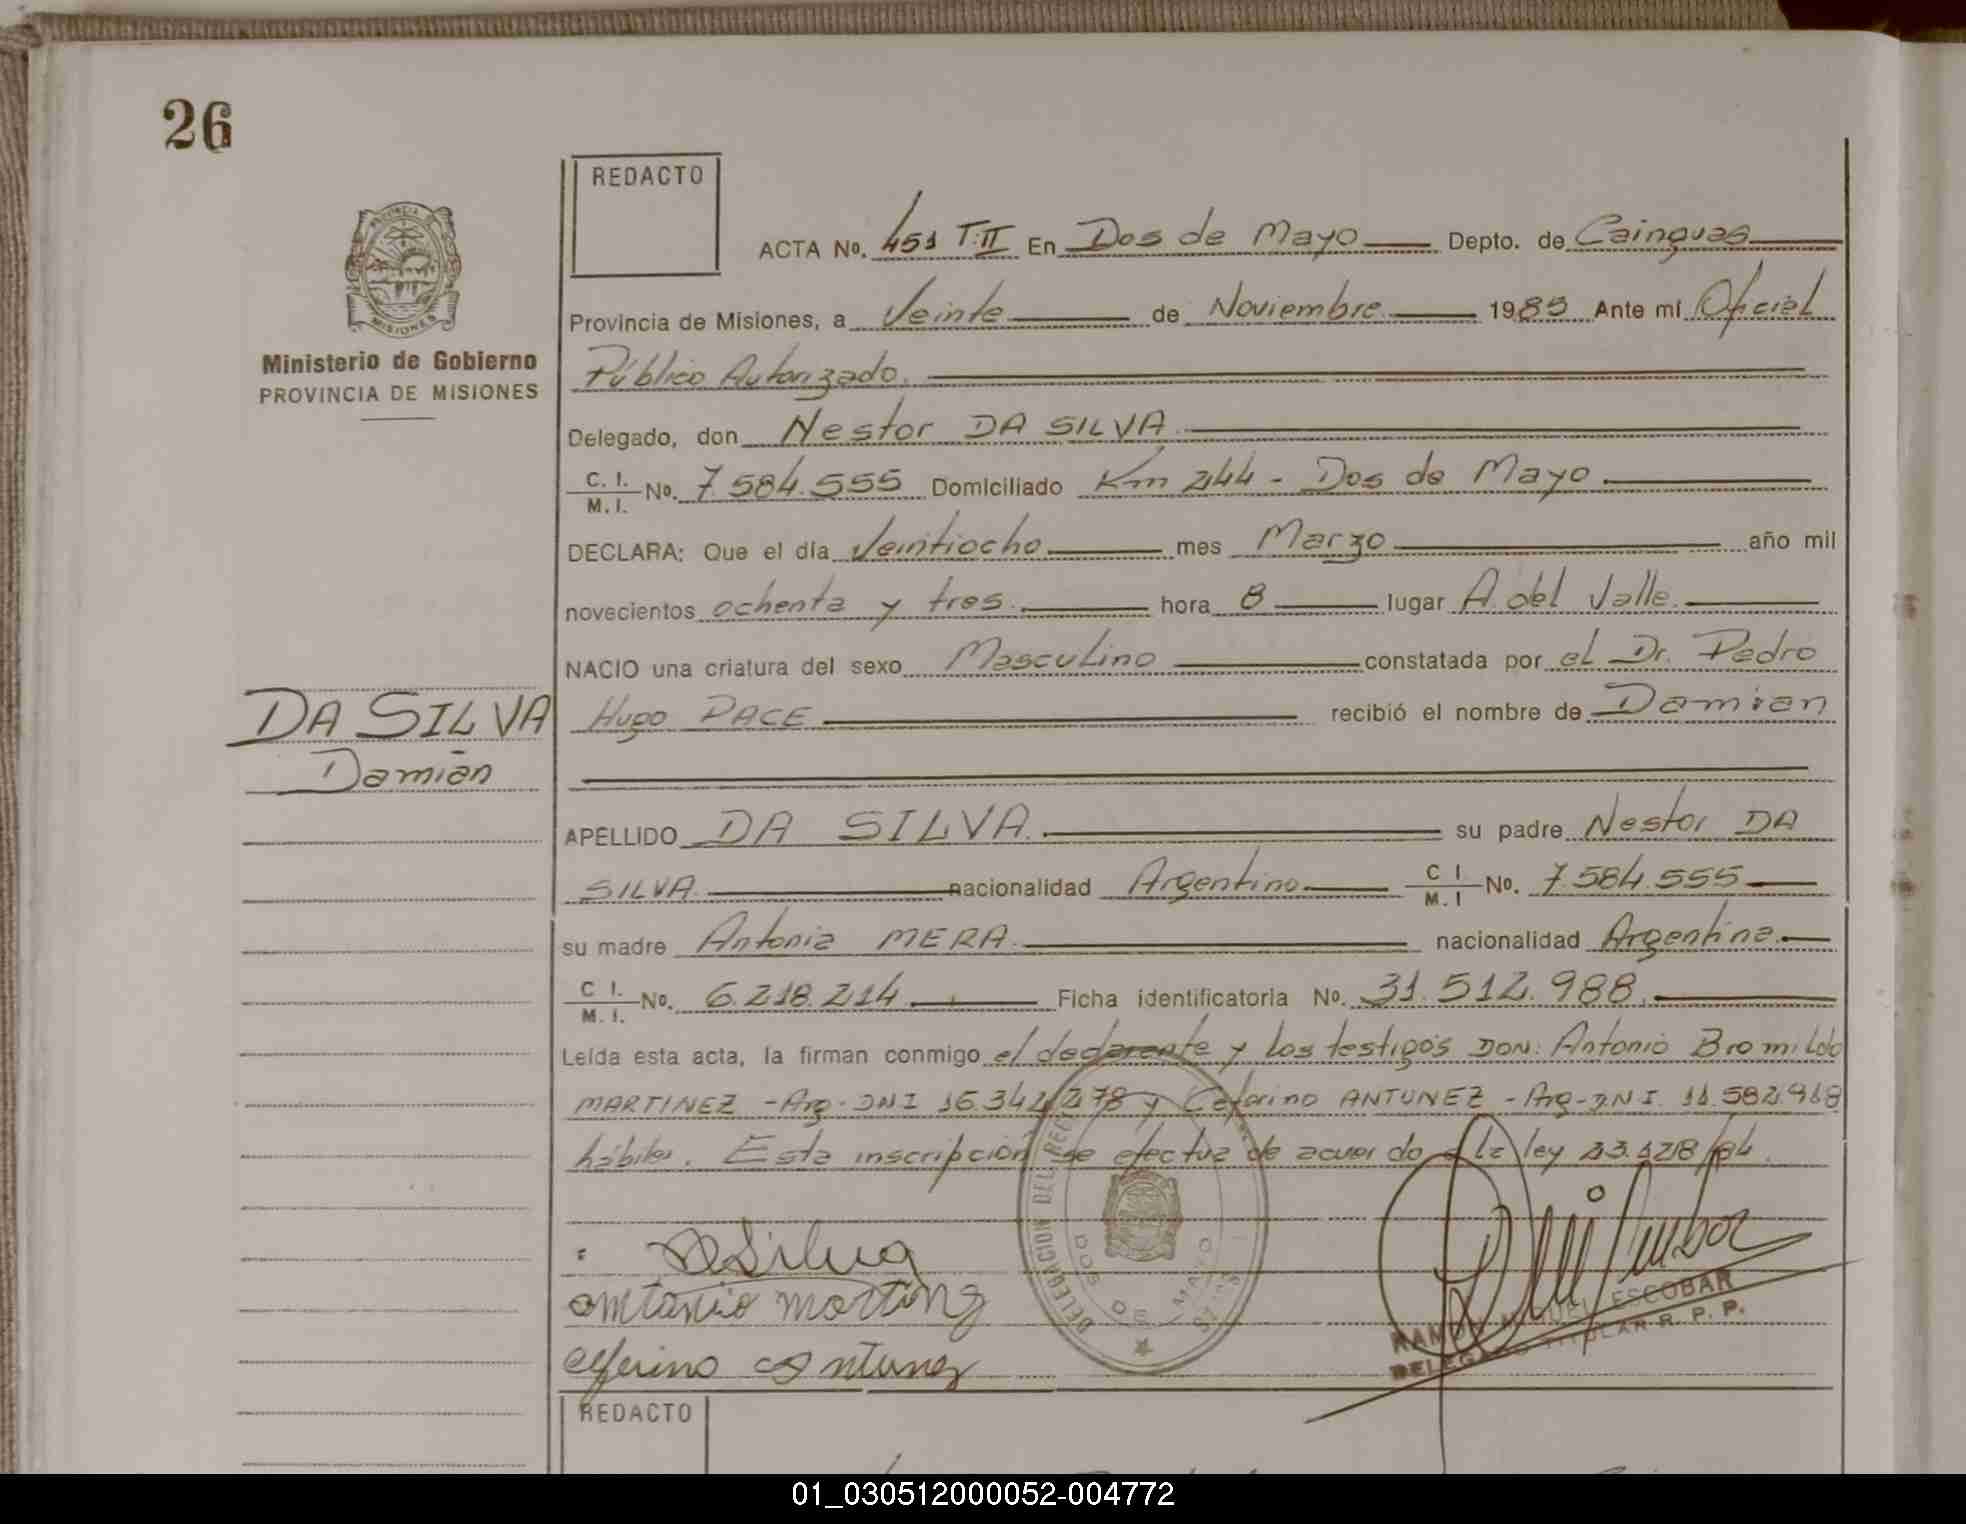 26
REDACTO
ACTA No. 451 T.II En Dos de Mayo Depto. de Cainguas
Provincia de Misiones, a Veinte de Noviembre 1985 Ante mí Oficial
Público Autorizado.
Ministerio de Gobierno
PROVINCIA DE MISIONES
Delegado, don Nestor DA SILVA
C. I. M. I. No. 7.584.555 Domiciliado Km 244 - Dos de Mayo
DECLARA: Que el día Veintiocho mes Marzo año mil
novecientos ochenta y tres. hora 8 lugar A. del Valle.
NACIO una criatura del sexo Masculino constatada por el Dr. Pedro
Hugo PACE recibió el nombre de Damian
DA SILVA
Damián
APELLIDO DA SILVA. su padre Nestor DA
SILVA. nacionalidad Argentino C I. M. I No. 7.584.555
su madre Antonia MERA. nacionalidad Argentina.
C I. M. I. No. 6.218.214 Ficha identificatoria No. 31.512.988.
Leída esta acta, la firman conmigo el declarante y los testigos DON: Antonio Bromildo
MARTINEZ - Arg - DNI 16.342.278 y Ceferino ANTUNEZ - Arg - D.N.I. 11.582.968
hábiles. Esta inscripción se efectua de acuerdo a la ley 23.128/84.
DELEGACION DEL
DOS DE MAYO
Da Silva
antonio martinz
ceferino antunez
RAMON MIGUEL ESCOBAR
DELEGADO TITULAR R. P. P.
REDACTO
01_030512000052-004772